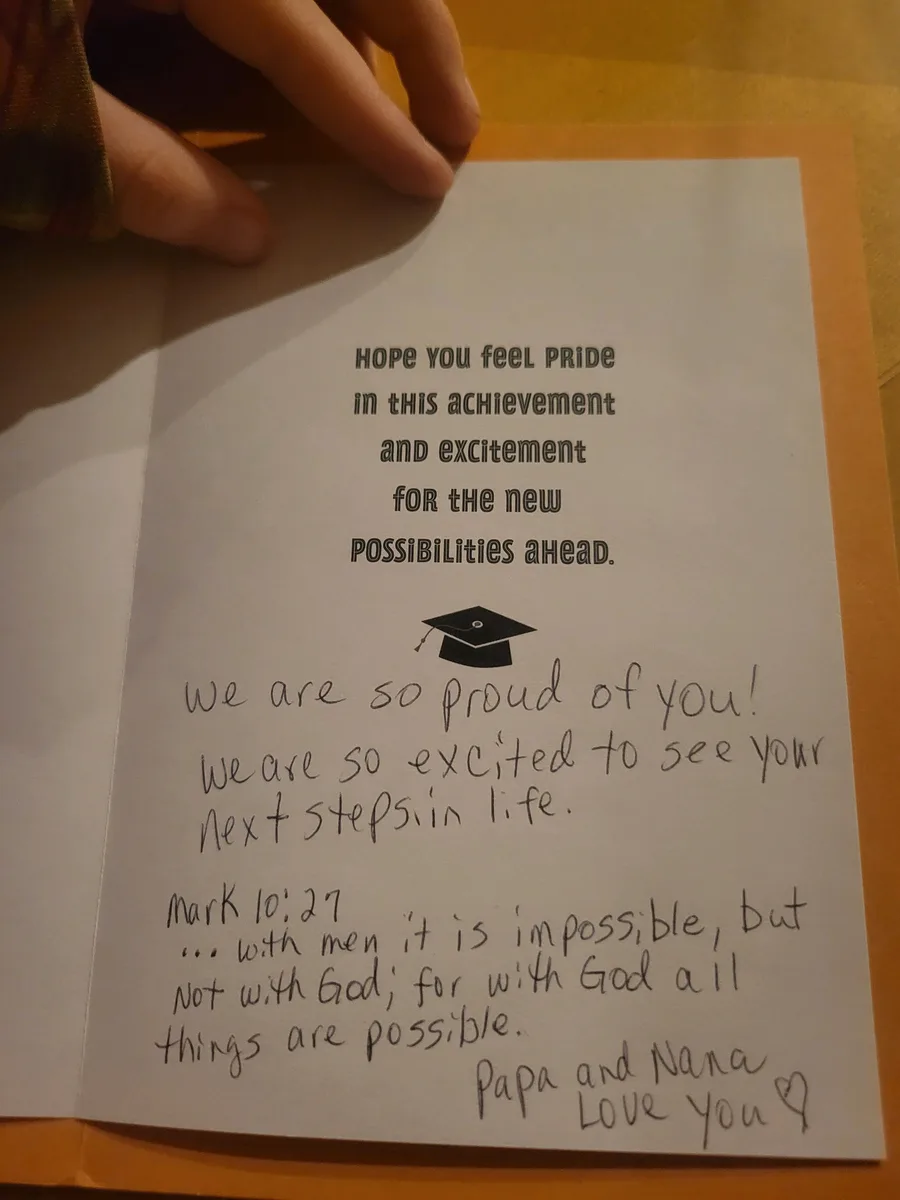 HOPE YOU feeL PRiDE
in tHis aCHievement
anD eXCitement
foR tHe new
POSSiBiLities aHeaD.
we are so proud of you!
we are so excited to see your
next steps in life.
Mark 10:27
... with men it is impossible, but
Not with God; for with God all
things are possible.
Papa and Nana
Love You ♡